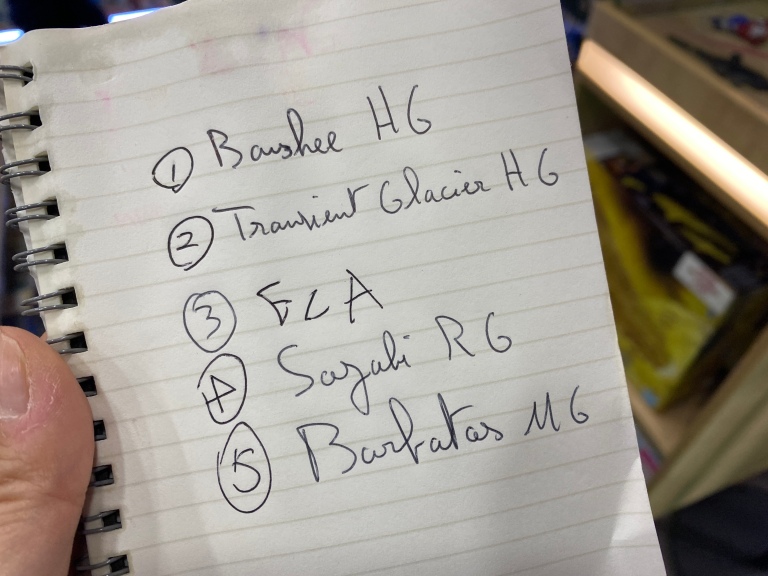 ① Banshee HG
② Transient Glacier HG
③ ECA
④ Sazabi RG
⑤ Barbatos MG